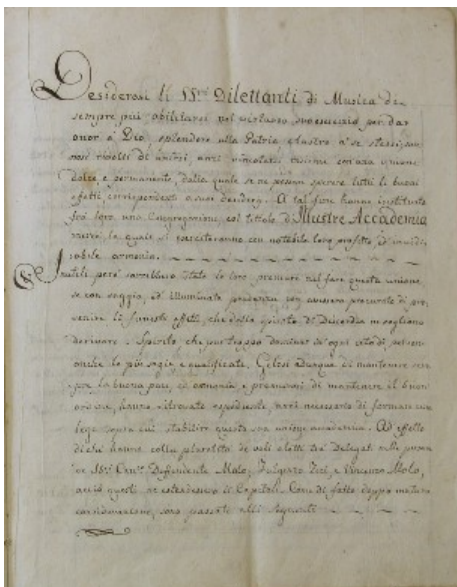 Desiderosi li SS:ri Dilettanti di Musica di
sempre più abilitarsi nel virtuoso loro esercizio per dar
onor a Dio, splendore alla Patria, e lustro a' se stessi, sono
rivolti di unirsi, anzi vincolarsi insieme con una unione
dolce e permanente, dalla quale se ne possan sperare tutti li buoni
effetti, corrispondenti a suoi desiderj. A tal fine hanno instituito
fra loro una Congregazione, col titolo di Illustre Accademia
mercè la quale si eserciteranno con notabile loro profitto, d'invidi-
abile armonia.
Inutili però sarebbero state le loro premure nel fare questa unione
se con saggia, ed' illuminata prudenza non avessero procurato di pre-
venire li funesti effetti, che dallo spirito di Discordia ne sogliono
derivare: Spirito, che pur troppo domina in ogni città di persone
anche le più sagie e qualificate. Gelosi adunque di mantenere sem-
pre la buona pace, ed armonia e premurosi di mantenere il buon
ordine, hanno ritrovato espediente anzi necessario di formare una
lege sopra cui stabilire questa sua unione accademica. Ad effetto
di che hanno colla pluralità de voti eletti tre Delegati nelle persone
de SS:ri Defendente Malo, Zeci, e Vincenzo Molo,
acciò questi ne estendessero li Capitoli. Come di fatto doppo matura
considerazione, sono passati alli seguenti